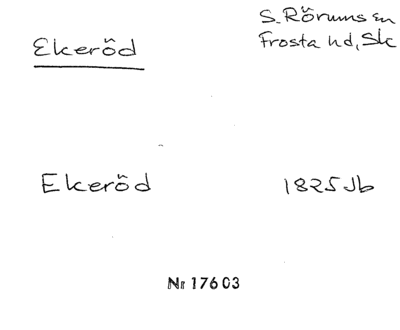 Ekeröd
S. Rörums sn
Frosta hd, Sk
Ekeröd
1825 Jb
Nr 17603